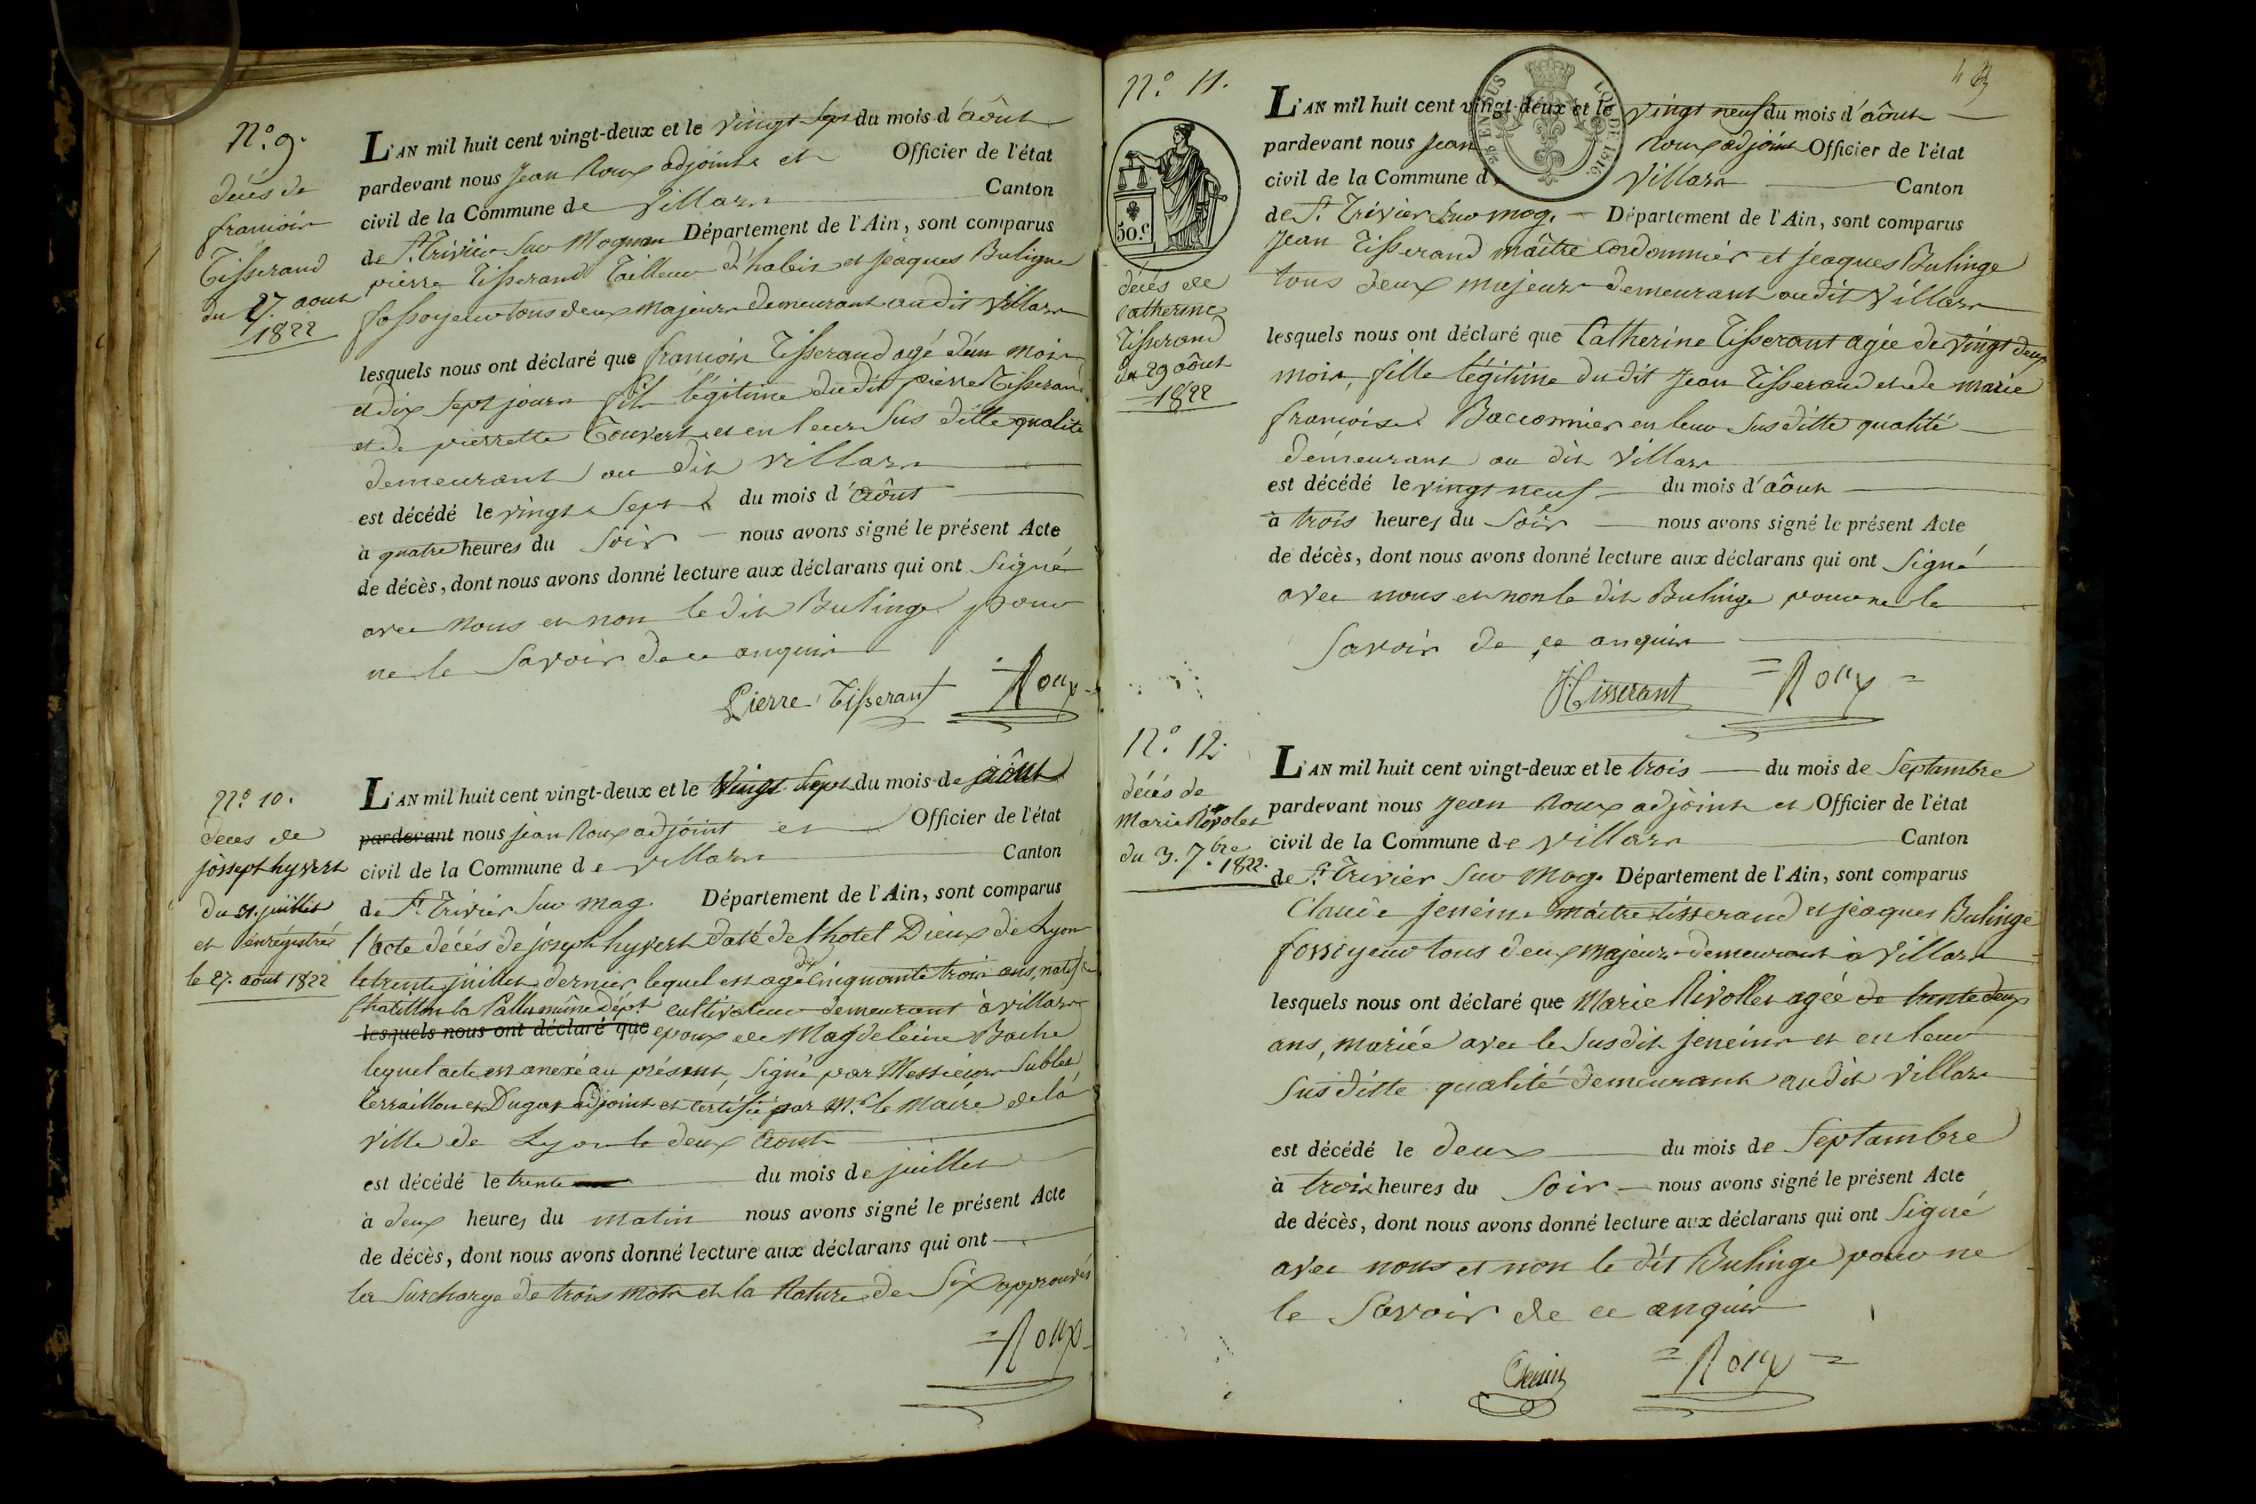 N.° 9.
décès de
francois
Tisserand
du 27. aout
1822
L'AN mil huit cent vingt-deux et le vingt Sept du mois d'août
pardevant nous Jean Roux adjoint et Officier de l'état
civil de la Commune de Villars Canton
de St. Trivier Sur Mognan Département de l'Ain, sont comparus
pierre Tisserand Tailleur d'habis et Jeaques Bulinge
fossoyeur tous deux majeurs demeurant au dit Villars
lesquels nous ont déclaré que francois Tisserand agé d'un mois
et dix Sept jours fils légitime du dit pierre Tisserand
et de pierrette Touvert et en leur Sus ditte qualité
demeurant au dit Villars
est décédé le vingt Sept du mois d'août
à quatre heures du Soir nous avons signé le présent Acte
de décès, dont nous avons donné lecture aux déclarans qui ont Signé
avec nous et non le dit Bulinge pour
ne le Savoir de ce anquis
Pierre Tisserant Roux
N.° 10.
décès de
josseph hyvert
du 31. juillet
et enrégistré
le 27. aout 1822
L'AN mil huit cent vingt-deux et le Vingt Sept du mois de août
pardevant nous jean Roux adjoint et Officier de l'état
civil de la Commune de Villars Canton
de St. Trivier Sur Mog. Département de l'Ain, sont comparus
l'acte décés de joseph hyvert daté de l'hotel Dieux de Lyon
le trente juillet dernier lequel est agé de cinquante trois ans, natif de
Chatillon la Pallu même dépt. cultivateur demeurant à Villars
lesquels nous ont déclaré que epoux de Magdeleine Bache
lequel acte est anexé au présent, Signé par Messieurs Sublet,
Terraillon et Dugas adjoint et certifié par Mr. le Maire de la
Ville de Lyon le deux Aout
est décédé le trente du mois de juillet
à deux heures du matin nous avons signé le présent Acte
de décès, dont nous avons donné lecture aux déclarans qui ont
la Surcharge de trois mots et la Rature de Six approuvés
Roux
N.° 11.
50.c
décès de
Catherine
Tisserand
du 29 août
1822
L'AN mil huit cent vingt-deux et le vingt neuf du mois d'août
pardevant nous Jean Roux adjoint Officier de l'état
civil de la Commune d Villars Canton
de St. Trivier Sur mog. Département de l'Ain, sont comparus
Jean Tisserand maitre Cordonnier et jeaques Bulinge
tous deux majeurs demeurant audit Villars
lesquels nous ont déclaré que Catherine Tisserant agée de vingt deux
mois, fille légitime du dit Jean Tisserand et de marie
francoise Bacconnier en leur Sus ditte qualité
demeurant au dit Villars
est décédé le vingt neuf du mois d'août
à trois heures du Soir nous avons signé le présent Acte
de décès, dont nous avons donné lecture aux déclarans qui ont Signé
avec nous et non le dit Bulinge pour ne le
Savoir de ce anquis
J Tisserant Roux
N.° 12.
décès de
Marie Rivolet
du 3. 7.bre
1822.
L'AN mil huit cent vingt-deux et le trois du mois de Septambre
pardevant nous Jean Roux adjoint et Officier de l'état
civil de la Commune de Villars Canton
de St. Trivier Sur Mog. Département de l'Ain, sont comparus
Claude jenein maitre tisserand et jéaques Bulinge
fossoyeur tous deux majeurs demeurant à Villars
lesquels nous ont déclaré que Marie Rivollet agée de trente deux
ans, mariée avec le Susdit jenein et en leur
Sus ditte qualité demeurant audit Villars
est décédé le deux du mois de Septambre
à trois heures du Soir nous avons signé le présent Acte
de décès, dont nous avons donné lecture aux déclarans qui ont Signé
avec nous et non le dit Bulinge pour ne
le Savoir de ce anquis
Roux